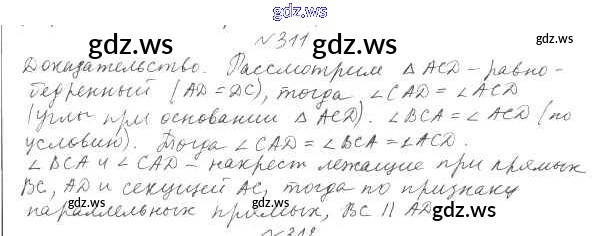 gdz.ws
№311
gdz.ws gdz.ws
Доказательство. Рассмотрим △ ACD - равно-
бедренный (AD = DC), тогда ∠CAD = ∠ACD
(углы при основании △ ACD). ∠BCA = ∠ACD (по
условию). Тогда ∠CAD = ∠BCA = ∠ACD.
gdz.ws gdz.ws
∠BCA и ∠CAD - накрест лежащие при прямых
BC, AD и секущей AC, тогда по признаку
параллельных прямых, BC || AD
gdz.ws gdz.ws
№312